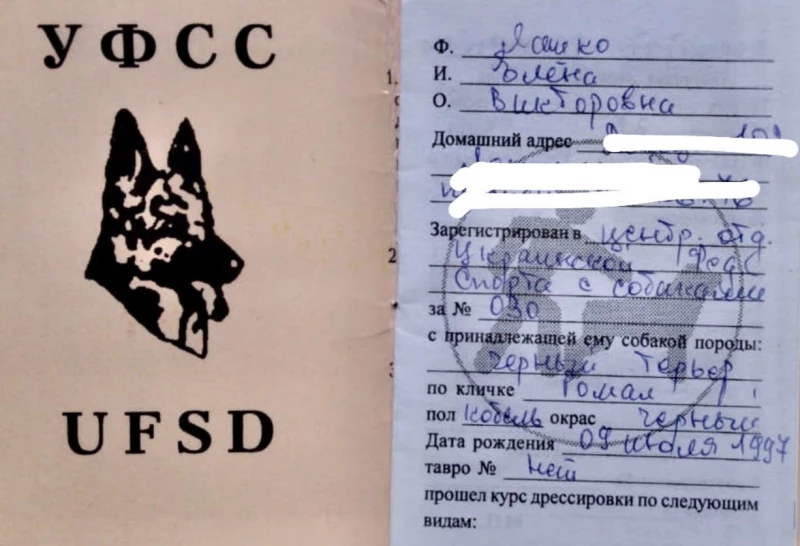 УФСС
UFSD
Ф. Яшко
И. Елена
О. Викторовна
Домашний адрес
Зарегистрирован в центр. отд.
Украинской Фед
Спорта с собаками
за № 030
с принадлежащей ему собакой породы:
черный терьер
по кличке Гомал
пол кобель окрас черный
Дата рождения 09 июля 1997
тавро № нет
прошел курс дрессировки по следующим
видам: